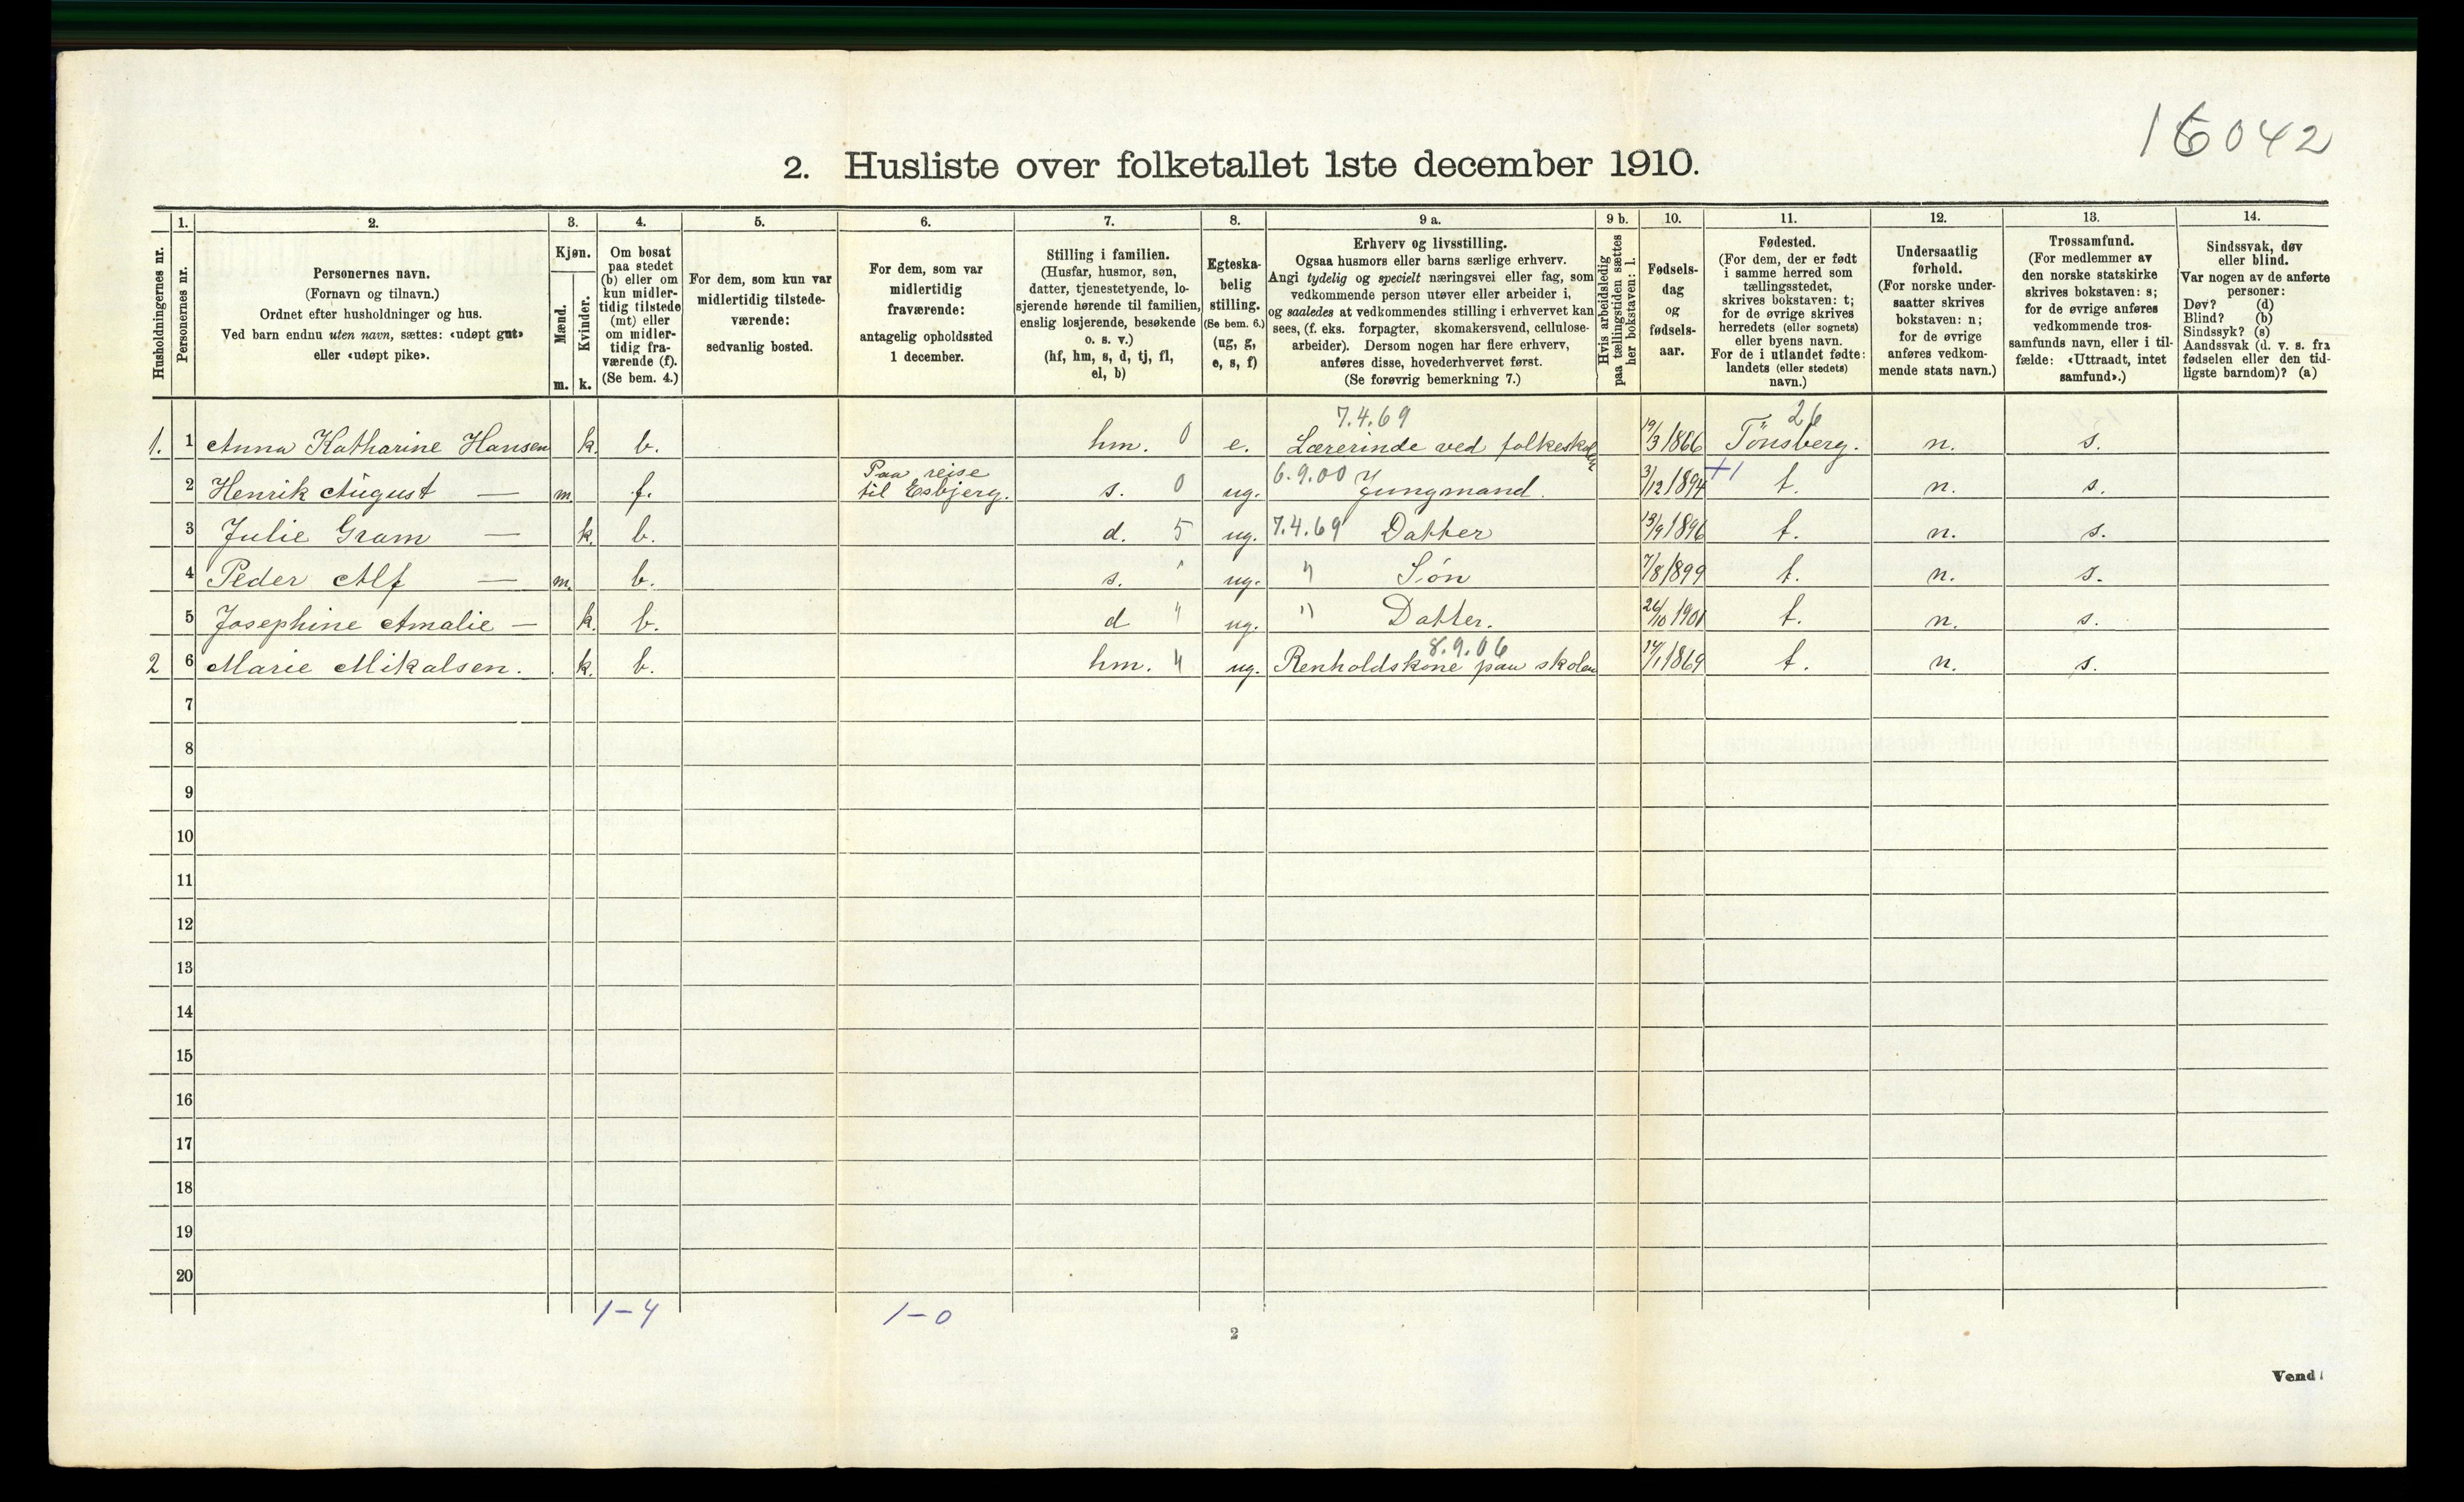 16042
2. Husliste over folketallet 1ste december 1910.
Husholdningernes nr.
1.
Personernes nr.
2.
Personernes navn.
(Fornavn og tilnavn.)
Ordnet efter husholdninger og hus.
Ved barn endnu uten navn, sættes: «udøpt gut»
eller «udøpt pike».
3.
Kjøn.
Mænd.
Kvinder.
m. k.
4.
Om bosat
paa stedet
(b) eller om
kun midler-
tidig tilstede
(mt) eller
om midler-
tidig fra-
værende (f).
(Se bem. 4.)
5.
For dem, som kun var
midlertidig tilstede-
værende:
sedvanlig bosted.
6.
For dem, som var
midlertidig
fraværende:
antagelig opholdssted
1 december.
7.
Stilling i familien.
(Husfar, husmor, søn,
datter, tjenestetyende, lo-
sjerende hørende til familien,
enslig losjerende, besøkende
o. s. v.)
(hf, hm, s, d, tj, fl,
el, b)
8.
Egteska-
belig
stilling.
(Se bem. 6.)
(ug, g,
e, s, f)
9 a.
Erhverv og livsstilling.
Ogsaa husmors eller barns særlige erhverv.
Angi tydelig og specielt næringsvei eller fag, som
vedkommende person utøver eller arbeider i,
og saaledes at vedkommendes stilling i erhvervet kan
sees, (f. eks. forpagter, skomakersvend, cellulose-
arbeider). Dersom nogen har flere erhverv,
anføres disse, hovederhvervet først.
(Se forøvrig bemerkning 7.)
9 b.
Hvis arbeidsledig
paa tællingstiden sættes
her bokstaven: l.
10.
Fødsels-
dag
og
fødsels-
aar.
11.
Fødested.
(For dem, der er født
i samme herred som
tællingsstedet,
skrives bokstaven: t;
for de øvrige skrives
herredets (eller sognets)
eller byens navn.
For de i utlandet fødte:
landets (eller stedets)
navn.)
12.
Undersaatlig
forhold.
(For norske under-
saatter skrives
bokstaven: n;
for de øvrige
anføres vedkom-
mende stats navn.)
13.
Trossamfund.
(For medlemmer av
den norske statskirke
skrives bokstaven: s;
for de øvrige anføres
vedkommende tros-
samfunds navn, eller i til-
fælde: «Uttraadt, intet
samfund».)
14.
Sindssvak, døv
eller blind.
Var nogen av de anførte
personer:
Døv? (d)
Blind? (b)
Sindssyk? (s)
Aandssvak (d. v. s. fra
fødselen eller den tid-
ligste barndom)? (a)
7.4.69 26
1. 1 Anna Katharine Hansen k. b. hm. 0 e. Lærerinde ved folkeskolen 19/3 1866 Tönsberg. n. s.
Paa reise
2 Henrik August — m. f. til Esbjerg. s. 0 ug. 6.9.00 Jungmand. 31/12 1894 +1 t. n. s.
3 Julie Gram — k. b. d. 5 ug. 7.4.69 Datter 13/9 1896 t. n. s.
4 Peder Alf — m. b. s. " ug. " Søn 7/8 1899 t. n. s.
5 Josephine Amalie — k. b. d " ug. " Datter. 26/10 1901 t. n. s.
8.9.06
2 6 Marie Mikalsen. k. b. hm. 4 ug. Renholdskone paa skolen 14/1 1869 t. n. s.
7
8
9
10
11
12
13
14
15
16
17
18
19
20
1–4 1–0
2
Vend!